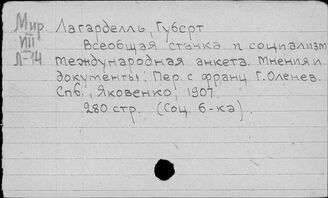 Мир Лагарделль, Губерт
VII Всеобщая стачка и социализм
Л-14 Международная анкета. Мнения и
документы. Пер. с франц. Г. Оленев.
Спб., Яковенко, 1907.
280 стр. (Соц. б-ка)